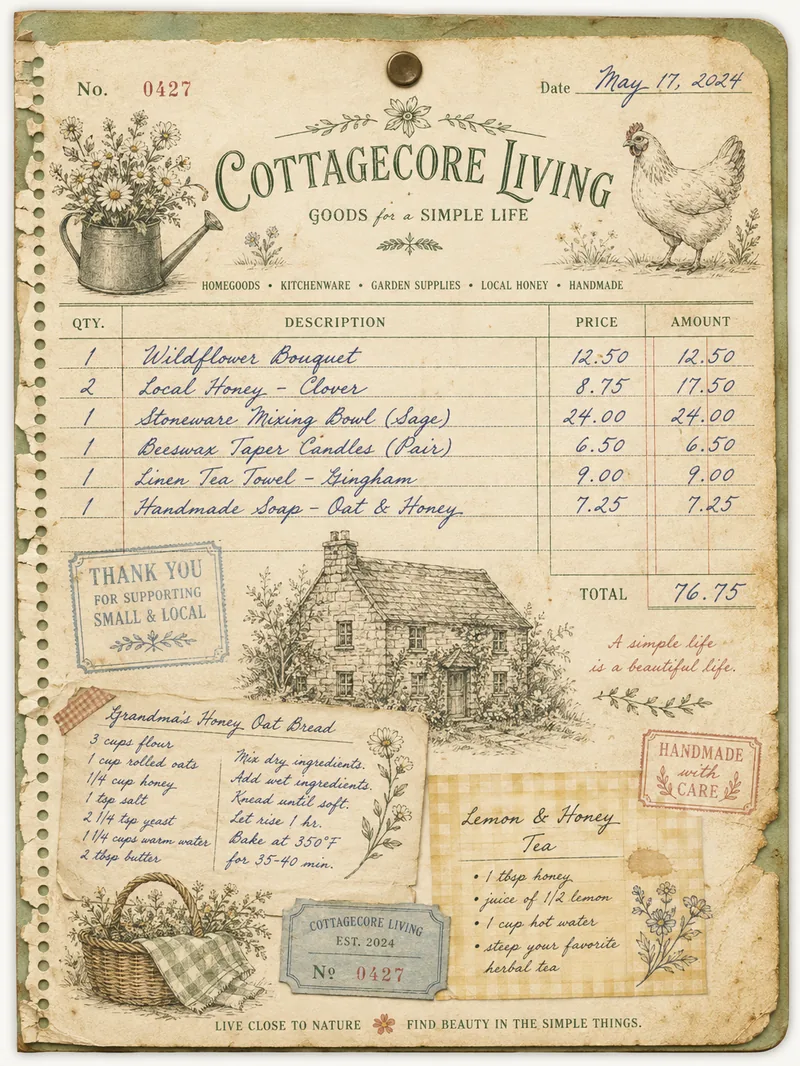 No. 0427
Date May 17, 2024
COTTAGECORE LIVING
GOODS for a SIMPLE LIFE
HOMEGOODS • KITCHENWARE • GARDEN SUPPLIES • LOCAL HONEY • HANDMADE
QTY. DESCRIPTION PRICE AMOUNT
1 Wildflower Bouquet 12.50 12.50
2 Local Honey - Clover 8.75 17.50
1 Stoneware Mixing Bowl (Sage) 24.00 24.00
1 Beeswax Taper Candles (Pair) 6.50 6.50
1 Linen Tea Towel - Gingham 9.00 9.00
1 Handmade Soap - Oat & Honey 7.25 7.25
TOTAL 76.75
THANK YOU
FOR SUPPORTING
SMALL & LOCAL
A simple life
is a beautiful life.
Grandma's Honey Oat Bread
3 cups flour
1 cup rolled oats
1/4 cup honey
1 tsp salt
2 1/4 tsp yeast
1 1/4 cups warm water
2 tbsp butter
Mix dry ingredients.
Add wet ingredients.
Knead until soft.
Let rise 1 hr.
Bake at 350°F
for 35-40 min.
HANDMADE
with
CARE
Lemon & Honey
Tea
• 1 tbsp honey
• juice of 1/2 lemon
• 1 cup hot water
• steep your favorite
herbal tea
COTTAGECORE LIVING
EST. 2024
Nº 0427
LIVE CLOSE TO NATURE FIND BEAUTY IN THE SIMPLE THINGS.